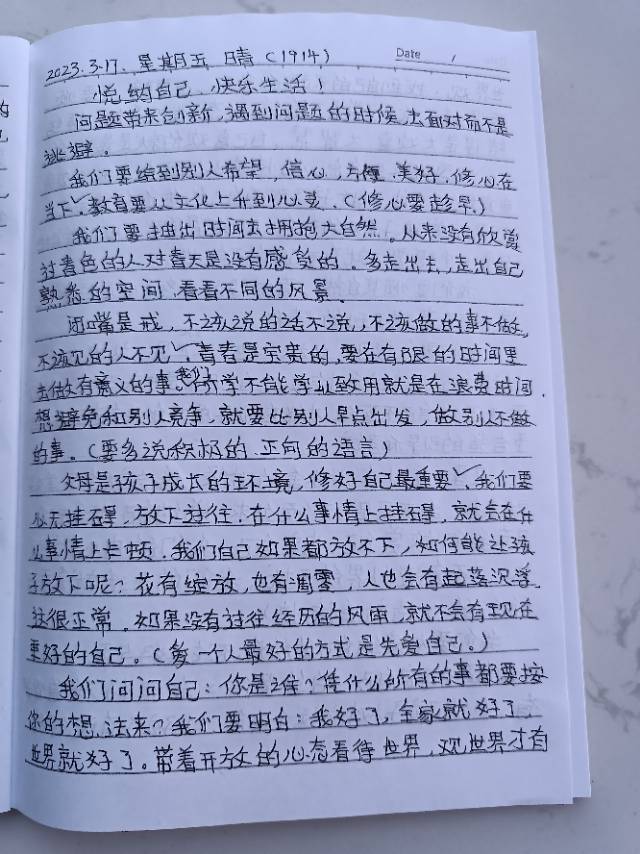 2023.3.17. 星期五 晴（1914）
Date /
悦纳自己、快乐生活！
问题带来创新，遇到问题的时候，去面对而不是
逃避。
我们要给到别人希望，信心，方便，美好。修心在
当下，教育要从文化上升到心灵。（修心要趁早。）
我们要抽出时间去拥抱大自然。从来没有欣赏
过青色的人对青天是没有感觉的。多走出去，走出自己
熟悉的空间，看看不同的风景。
闭嘴是戒，不该说的话不说，不该做的事不做，
不该见的人不见，青春是宝贵的，要在有限的时间里
去做有意义的事。我们所学不能学以致用就是在浪费时间，
想避免和别人竞争，就要比别人早点出发，做别人不做
的事。（要多说积极的、正向的语言）
父母是孩子成长的环境，修好自己最重要，我们要
心无挂碍，放下过往，在什么事情上挂碍，就会在什
么事情上卡顿，我们自己如果都放不下，如何能让孩
子放下呢？花有绽放，也有凋零，人也会有起落沉浮，
这很正常，如果没有过往经历的风雨，就不会有现在
更好的自己。（爱一个人最好的方式是先爱自己。）
我们问问自己：你是谁？凭什么所有的事都要按
你的想法来？我们要明白：我好了，全家就好了，
世界就好了。带着开放的心态看待世界，观世界才有